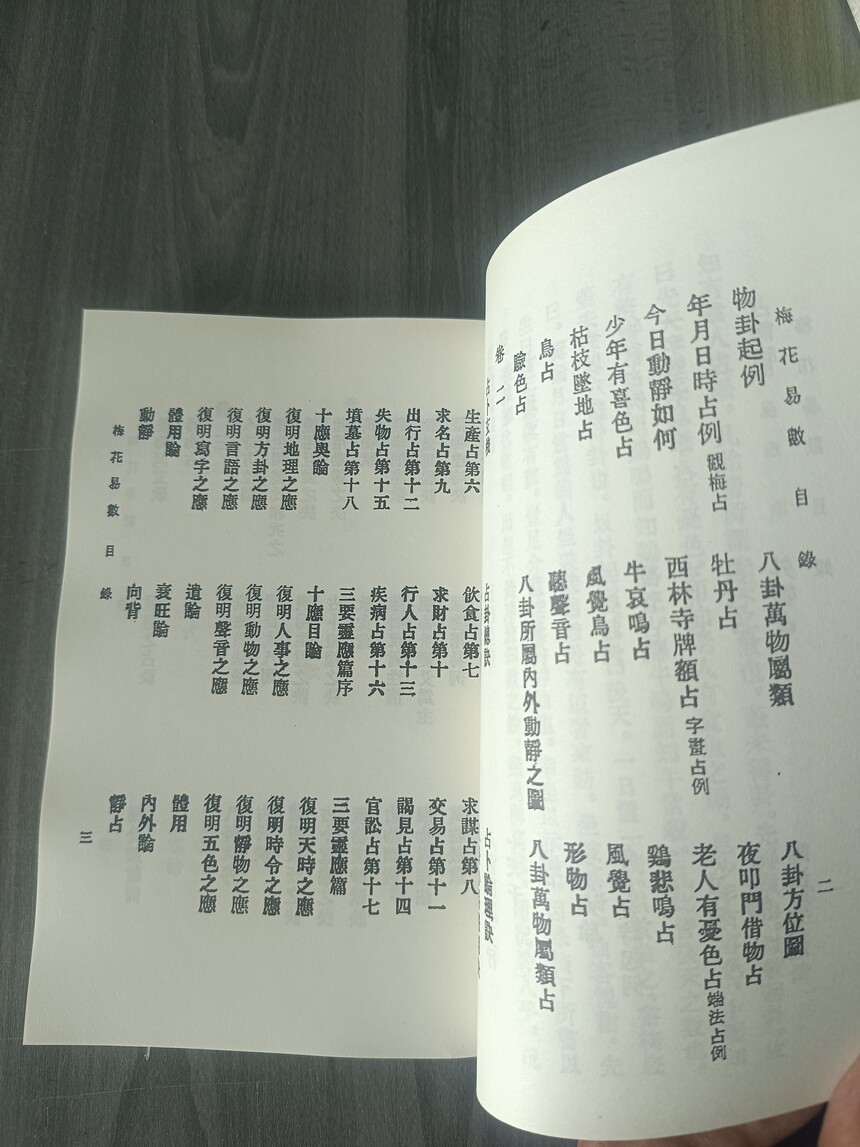 梅花易數目錄 二
物卦起例 八卦萬物屬類 八卦方位圖
年月日時占例 觀梅占 牡丹占 夜叩門借物占
今日動靜如何 西林寺牌額占 字畫占例 老人有憂色占 端法占例
少年有喜色占 牛哀鳴占 鷄悲鳴占
枯枝墜地占 風覺鳥占 風覺占
鳥占 聽聲音占 形物占
臉色占 八卦所屬內外動靜之圖 八卦萬物屬類占
卷二
占卜論理訣
生產占第六 飲食占第七 求謀占第八
求名占第九 求財占第十 交易占第十一
出行占第十二 行人占第十三 謁見占第十四
失物占第十五 疾病占第十六 官訟占第十七
墳墓占第十八 三要靈應篇序 三要靈應篇
十應奧論 十應目論 復明天時之應
復明地理之應 復明人事之應 復明時令之應
復明方卦之應 復明動物之應 復明靜物之應
復明言語之應 復明聲音之應 復明五色之應
復明寫字之應 遺論 體用
體用論 衰旺論 內外論
動靜 向背 靜占
梅花易數目錄 三